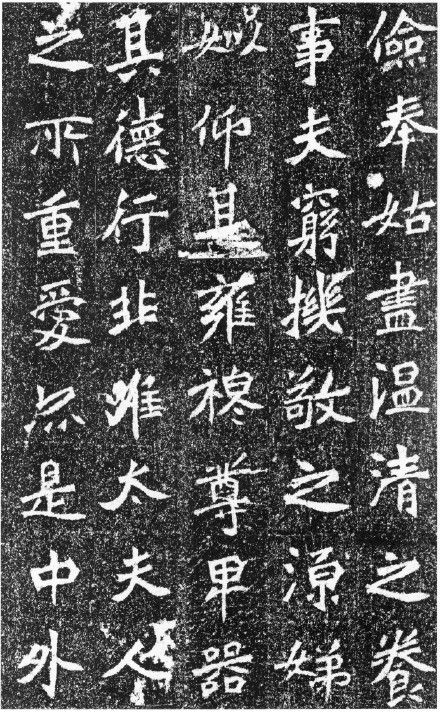 儉奉姑盡温清之養
事夫窮機敬之源娣
姒仰其雍穆尊卑器
其德行非唯太夫人
之所重愛亦是中外